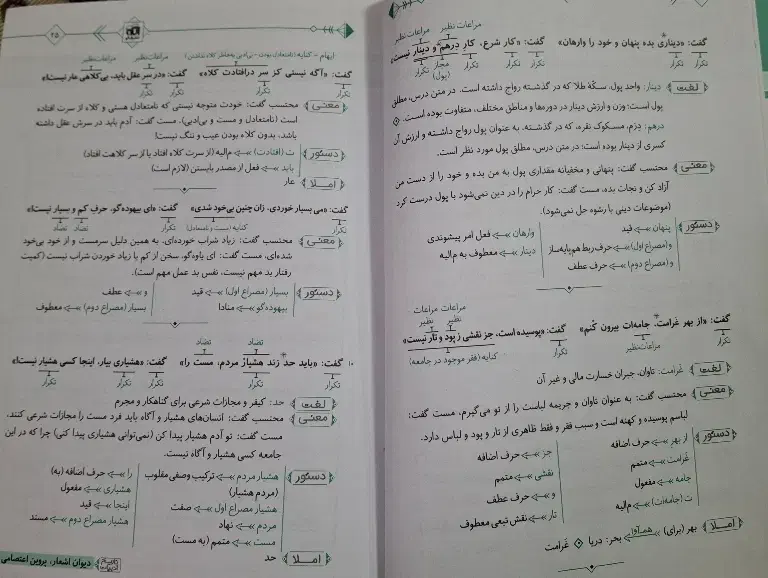 مراعات نظیر مراعات نظیر
گفت: «دیناری بده پنهان و خود را وارهان» گفت: «کار شرع، کار درهم و دینار نیست»
تکرار تکرار تکرار تکرار مجاز (پول) تکرار تکرار
لغت دینار: واحد پول، سکّهٔ طلا که در گذشته رواج داشته است. در متن درس، مطلق
پول است؛ وزن و ارزش دینار در دوره‌ها و مناطق مختلف، متفاوت بوده است.
درهم: دِرَم، مسکوک نقره، که در گذشته، به عنوان پول رواج داشته و ارزش آن
کسری از دینار بوده است؛ در متن درس، مطلق پول مورد نظر است.
معنی محتسب گفت: پنهانی و مخفیانه مقداری پول به من بده و خود را از دست من
آزاد کن و نجات بده، مست گفت: کار حرام را در دین نمی‌شود با پول درست کرد
(موضوعات دینی با رشوه حل نمی‌شود).
دستور پنهان ← قید وارهان ← فعل امر پیشوندی
و (مصراع اول) ← حرف ربط هم‌پایه‌ساز دینار ← معطوف به م‌الیه
و (مصراع دوم) ← حرف عطف
مراعات نظیر مراعات نظیر
گفت: «از بهر غرامت، جامه‌ات بیرون کُنم» گفت: «پوسیده است، جز نقشی ز پود و تار نیست»
تکرار مراعات‌نظیر تکرار کنایه (فقر موجود در جامعه)
لغت غرامت: تاوان، جبران خسارت مالی و غیر آن
معنی محتسب گفت: به عنوان تاوان و جریمه لباست را از تو می‌گیرم، مست گفت:
لباسم پوسیده و کهنه است و سبب فقر و فقط ظاهری از تار و پود و لباس دارد.
دستور از بهر ← حرف اضافه جز ← حرف اضافه
غرامت ← متمم نقشی ← متمم
جامه ← مفعول و ← حرف عطف
ت (جامه‌ات) ← م‌الیه تار ← نقش تبعی معطوف
املا بهر (برای) هم‌آوا بحر: دریا غرامت
۲۵
ایهام - کنایه (نامتعادل بودن - بی‌ادبی به‌خاطر کلاه نداشتن) مراعات‌نظیر مراعات‌نظیر
گفت: «آگه نیستی کز سر درافتادت کلاه» گفت: «در سر عقل باید، بی‌کلاهی عار نیست»
تکرار تکرار تکرار تکرار
معنی محتسب گفت: خودت متوجه نیستی که نامتعادل هستی و کلاه از سرت افتاده
است (نامتعادل و مست و بی‌ادبی). مست گفت: آدم باید در سرش عقل داشته
باشد، بدون کلاه بودن عیب و ننگ نیست!
دستور ت (افتادت) ← م‌الیه (از سرت کلاه افتاد یا از سر کلاهت افتاد)
باید ← فعل از مصدر بایستن (لازم است)
املا عار
گفت: «می بسیار خوردی، زان چنین بی‌خود شدی» گفت: «ای بیهوده‌گو، حرفِ کم و بسیار نیست!»
تکرار کنایه (مست و نامتعادل) تکرار تضاد تضاد
معنی محتسب گفت: زیاد شراب خورده‌ای، به همین دلیل سرمست و از خود بی‌خود
شده‌ای، مست گفت: ای یاوه‌گو، سخن از کم یا زیاد خوردن شراب نیست (کمیت
رفتار بد مهم نیست، نفس بد عمل مهم است).
دستور بسیار (مصراع اول) ← قید و ← عطف
بیهوده‌گو ← منادا بسیار (مصراع دوم) ← معطوف
تضاد تضاد
۱۰ گفت: «باید حد زند هشیار مردم، مست را» گفت: «هشیاری بیار، اینجا کسی هشیار نیست!»
تکرار تکرار تکرار تکرار تکرار
لغت حد: کیفر و مجازات شرعی برای گناهکار و مجرم
معنی محتسب گفت: انسان‌های هشیار و آگاه باید فرد مست را مجازات شرعی کنند.
مست گفت: تو آدم هشیار پیدا کن (نمی‌توانی هشیاری پیدا کنی) چرا که در این
جامعه کسی هشیار و آگاه نیست.
دستور هشیار مردم ← ترکیب وصفی مقلوب را ← حرف اضافه (به)
(مردم هشیار) هشیاری ← مفعول
هشیار مصراع اول ← صفت اینجا ← قید
مردم ← نهاد هشیار مصراع دوم ← مسند
مست ← متمم (به مست)
املا حد
دیوان اشعار، پروین اعتصامی